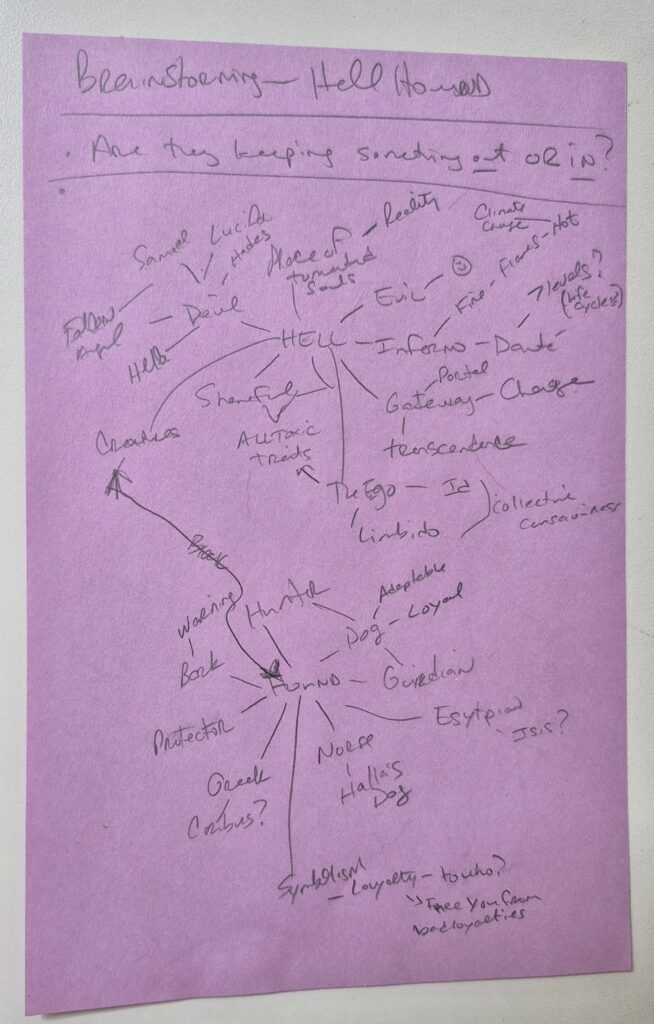 Brainstorming - Hell Hound
. Are they keeping something out OR in?
.
Samuel
Lucifer
Hades
Fallen
Angel
Devil
Hella
Place of
tormented
Souls
Reality
Climate
Change
Hot
Flames
Fire
Evil
HELL
Inferno - Dante
7 levels?
(Life
Cycles?)
Creatures
Shameful
ALL Toxic
traits
Portal
Gateway - Change
transcendence
The Ego - Id
Limbido
Collective
Consciousness
Warning
Bark
Hunter
Dog
Adaptable
Loyal
Guardian
HOUND
Protector
Greek
Norse
Halla's
Dog
Esytpian
Isis?
Symbolism
- Loyalty - to who?
Free You From
bad loyalties